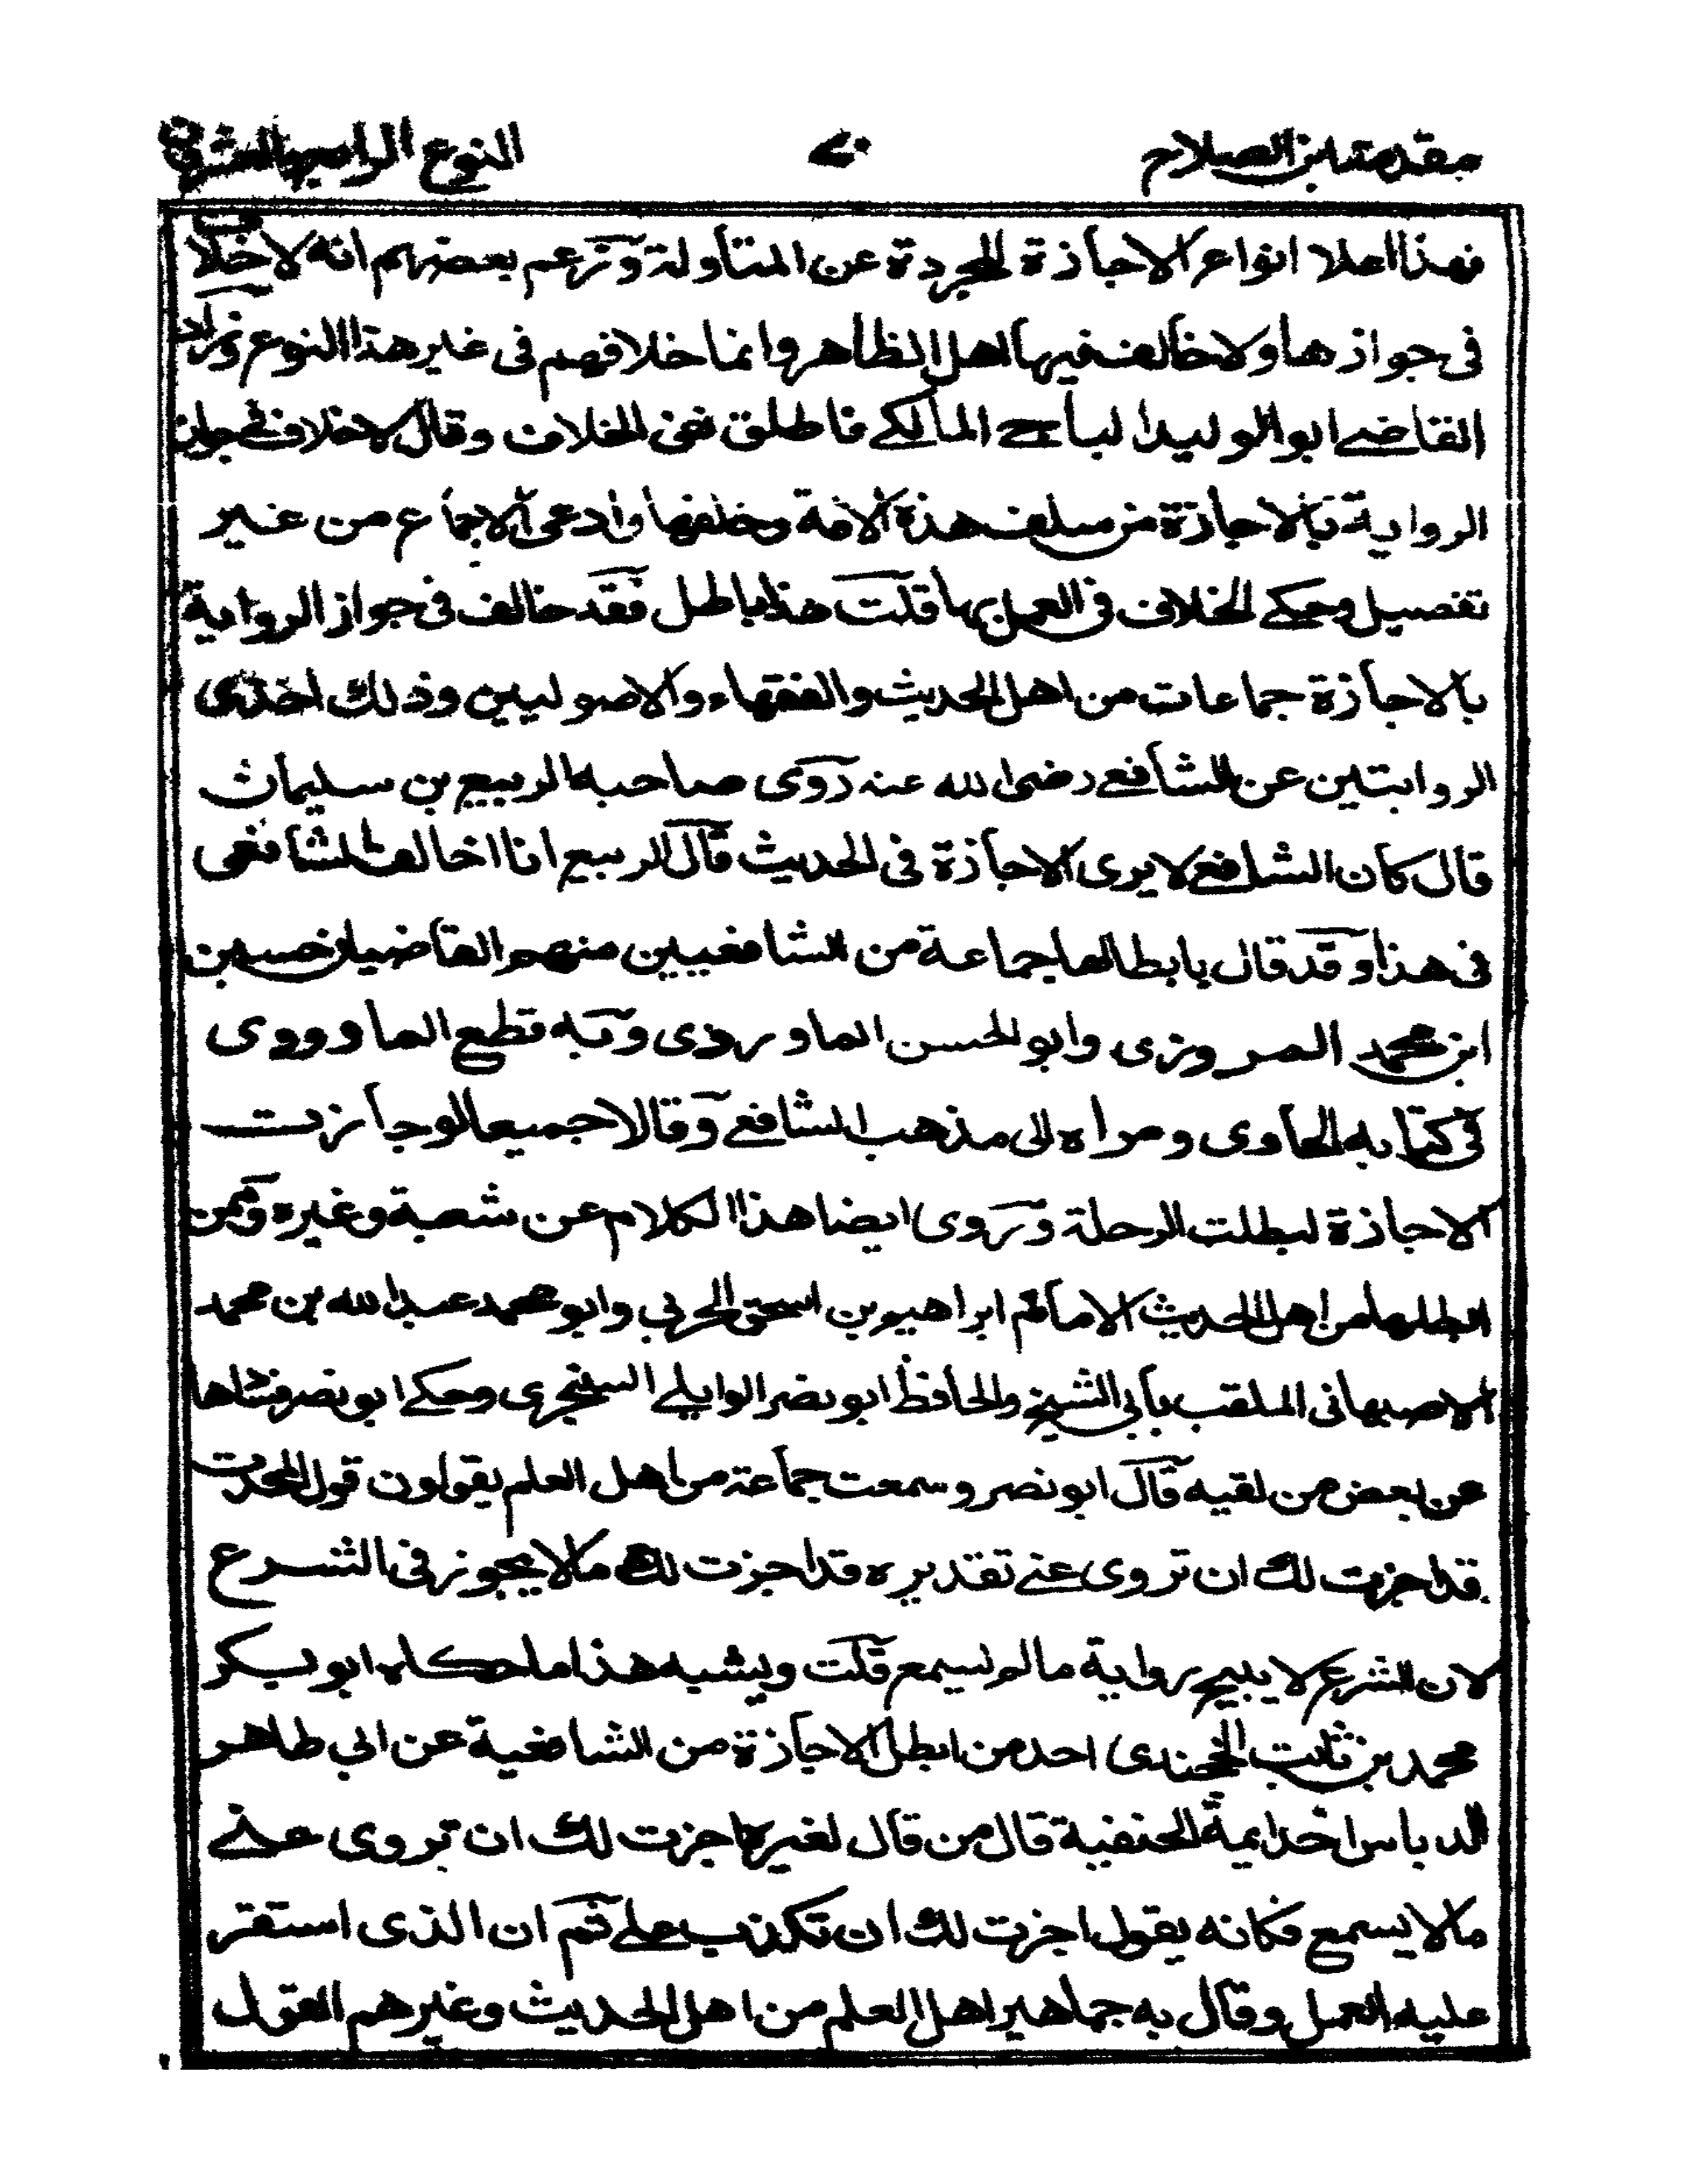 مقدمة ابن الصلاح ٧٠ النوع الرابع والعشرون
فهذا اعلا انواع الاجازة المجردة عن المناولة وزعم بعضهم انه لا خلاف
فى جوازها ولا خالف فيها اهل الظاهر وانما خلافهم فى غير هذا النوع وزاد
القاضے ابو الوليد الباجے المالكے فاطلق نفى الخلاف وقال لا خلاف فے جواز
الرواية بالاجازة من سلف هذه الامة وخلفها وادعى الاجماع من غير
تفصيل وحكے الخلاف فى العمل بها قلت هذا باطل فقد خالف فى جواز الرواية
بالاجازة جماعات من اهل الحديث والفقهاء والاصوليين وذلك احدى
الروايتين عن الشافعے رضى الله عنه روى صاحبه الربيع بن سليمان
قال كان الشافعے لا يرى الاجازة فى الحديث قال الربيع انا اخالف الشافعى
فى هذا وقد قال بابطالها جماعة من الشافعيين منهم القاضيان حسين
ابن محمد المروزى وابو الحسن الماوردى وبه قطع الماوردى
فى كتابه الحاوى وعزاه الى مذهب الشافعے وقالا جميعا لو جازت
الاجازة لبطلت الرحلة وروى ايضا هذا الكلام عن شعبة وغيره وممن
ابطلها من اهل الحديث الامام ابراهيم بن اسحق الحربي وابو محمد عبد الله بن محمد
الاصبهانى الملقب بأبي الشيخ والحافظ ابو نصر الوايلے السنجرى وحكے ابو نصر فسادها
عن بعض من لقيه قال ابو نصر وسمعت جماعة من اهل العلم يقولون قول المحدث
قد اجزت لك ان تروى عنے تقديره قد اجزت لك ما لا يجوز فى الشرع
لان الشرع لا يبيح رواية ما لم يسمع قلت ويشبه هذا ما حكاه ابو بكر
محمد بن ثابت الخجندى احد من ابطل الاجازة من الشافعية عن ابي طاهر
الدباس احد ايمة الحنفية قال من قال لغيره اجزت لك ان تروى عنے
ما لا يسمع فكانه يقول اجزت لك ان تكذب علے ثم ان الذى استقر
عليه العمل وقال به جماهير اهل العلم من اهل الحديث وغيرهم القول